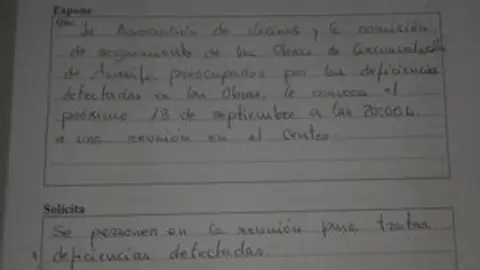 Expone
Que la Asociación de vecinos y la comisión
de seguimiento de las Obras de Circunvalación
de preocupados por las deficiencias
detectadas en las Obras, le convoca el
próximo 18 de septiembre a las 20:00 h
a una reunión en el Centro
Solicita
Se personen en la reunión para tratar
deficiencias detectadas